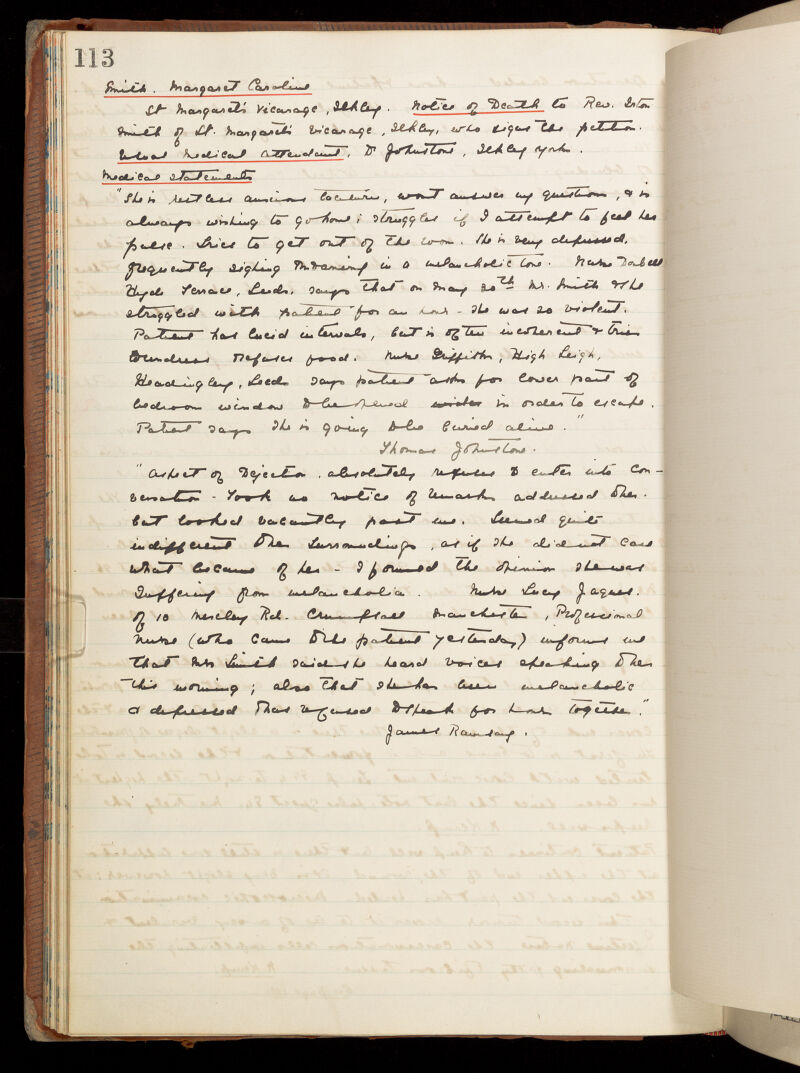 113
Smith. Margaret Caroline
St Margaret's Vicarage, Ilkley. Notice of Death to Rev. Irton
Smith of St. Margaret's Vicarage, Ilkley, who signs the petition.
Usual Medical attendant, Dr Johnstone, Ilkley Yorks.
Medical Statements
"She is restless anxious, wont answer my questions, & is
always wishing to go home; struggles if I attempt to feel her
pulse. tries to get out of the room. She is very depressed,
frequently sighing & moaning in a melancholic tone. Nurse
Hyde Terrace, Leeds, says that on May 20th Mr. Smith & she
struggled with patient for an hour - she was so violent.
Patient has lucid intervals, but is often incoherent & tries
to undress & refuses food. Nurse Griffiths, High Leigh,
Headingley, Leeds says patient asks for lower part of
bedroom window to be opened in order to escape.
Patient says she is going to be buried alive."
Thomas Johnstone.
"Aspect of Dejection. absolutely refuses to enter into con-
versation - Took no notice of remarks addressed to her.
but looked vacantly past me. Seemed quite
indifferent to her surroundings, as if she did not care
what became of her - I formed the opinion she was
suffering from melancholia. Nurse Lucy Jaques.
of 10 Rd. Crumpsall Manchester, Professional
nurse (who came to the patient yesterday) informs me
that Mrs Smith said she heard voices speaking to her
this morning; also that she has been melancholic
& depressed & has refused to speak for hours together."
James Ramsay.